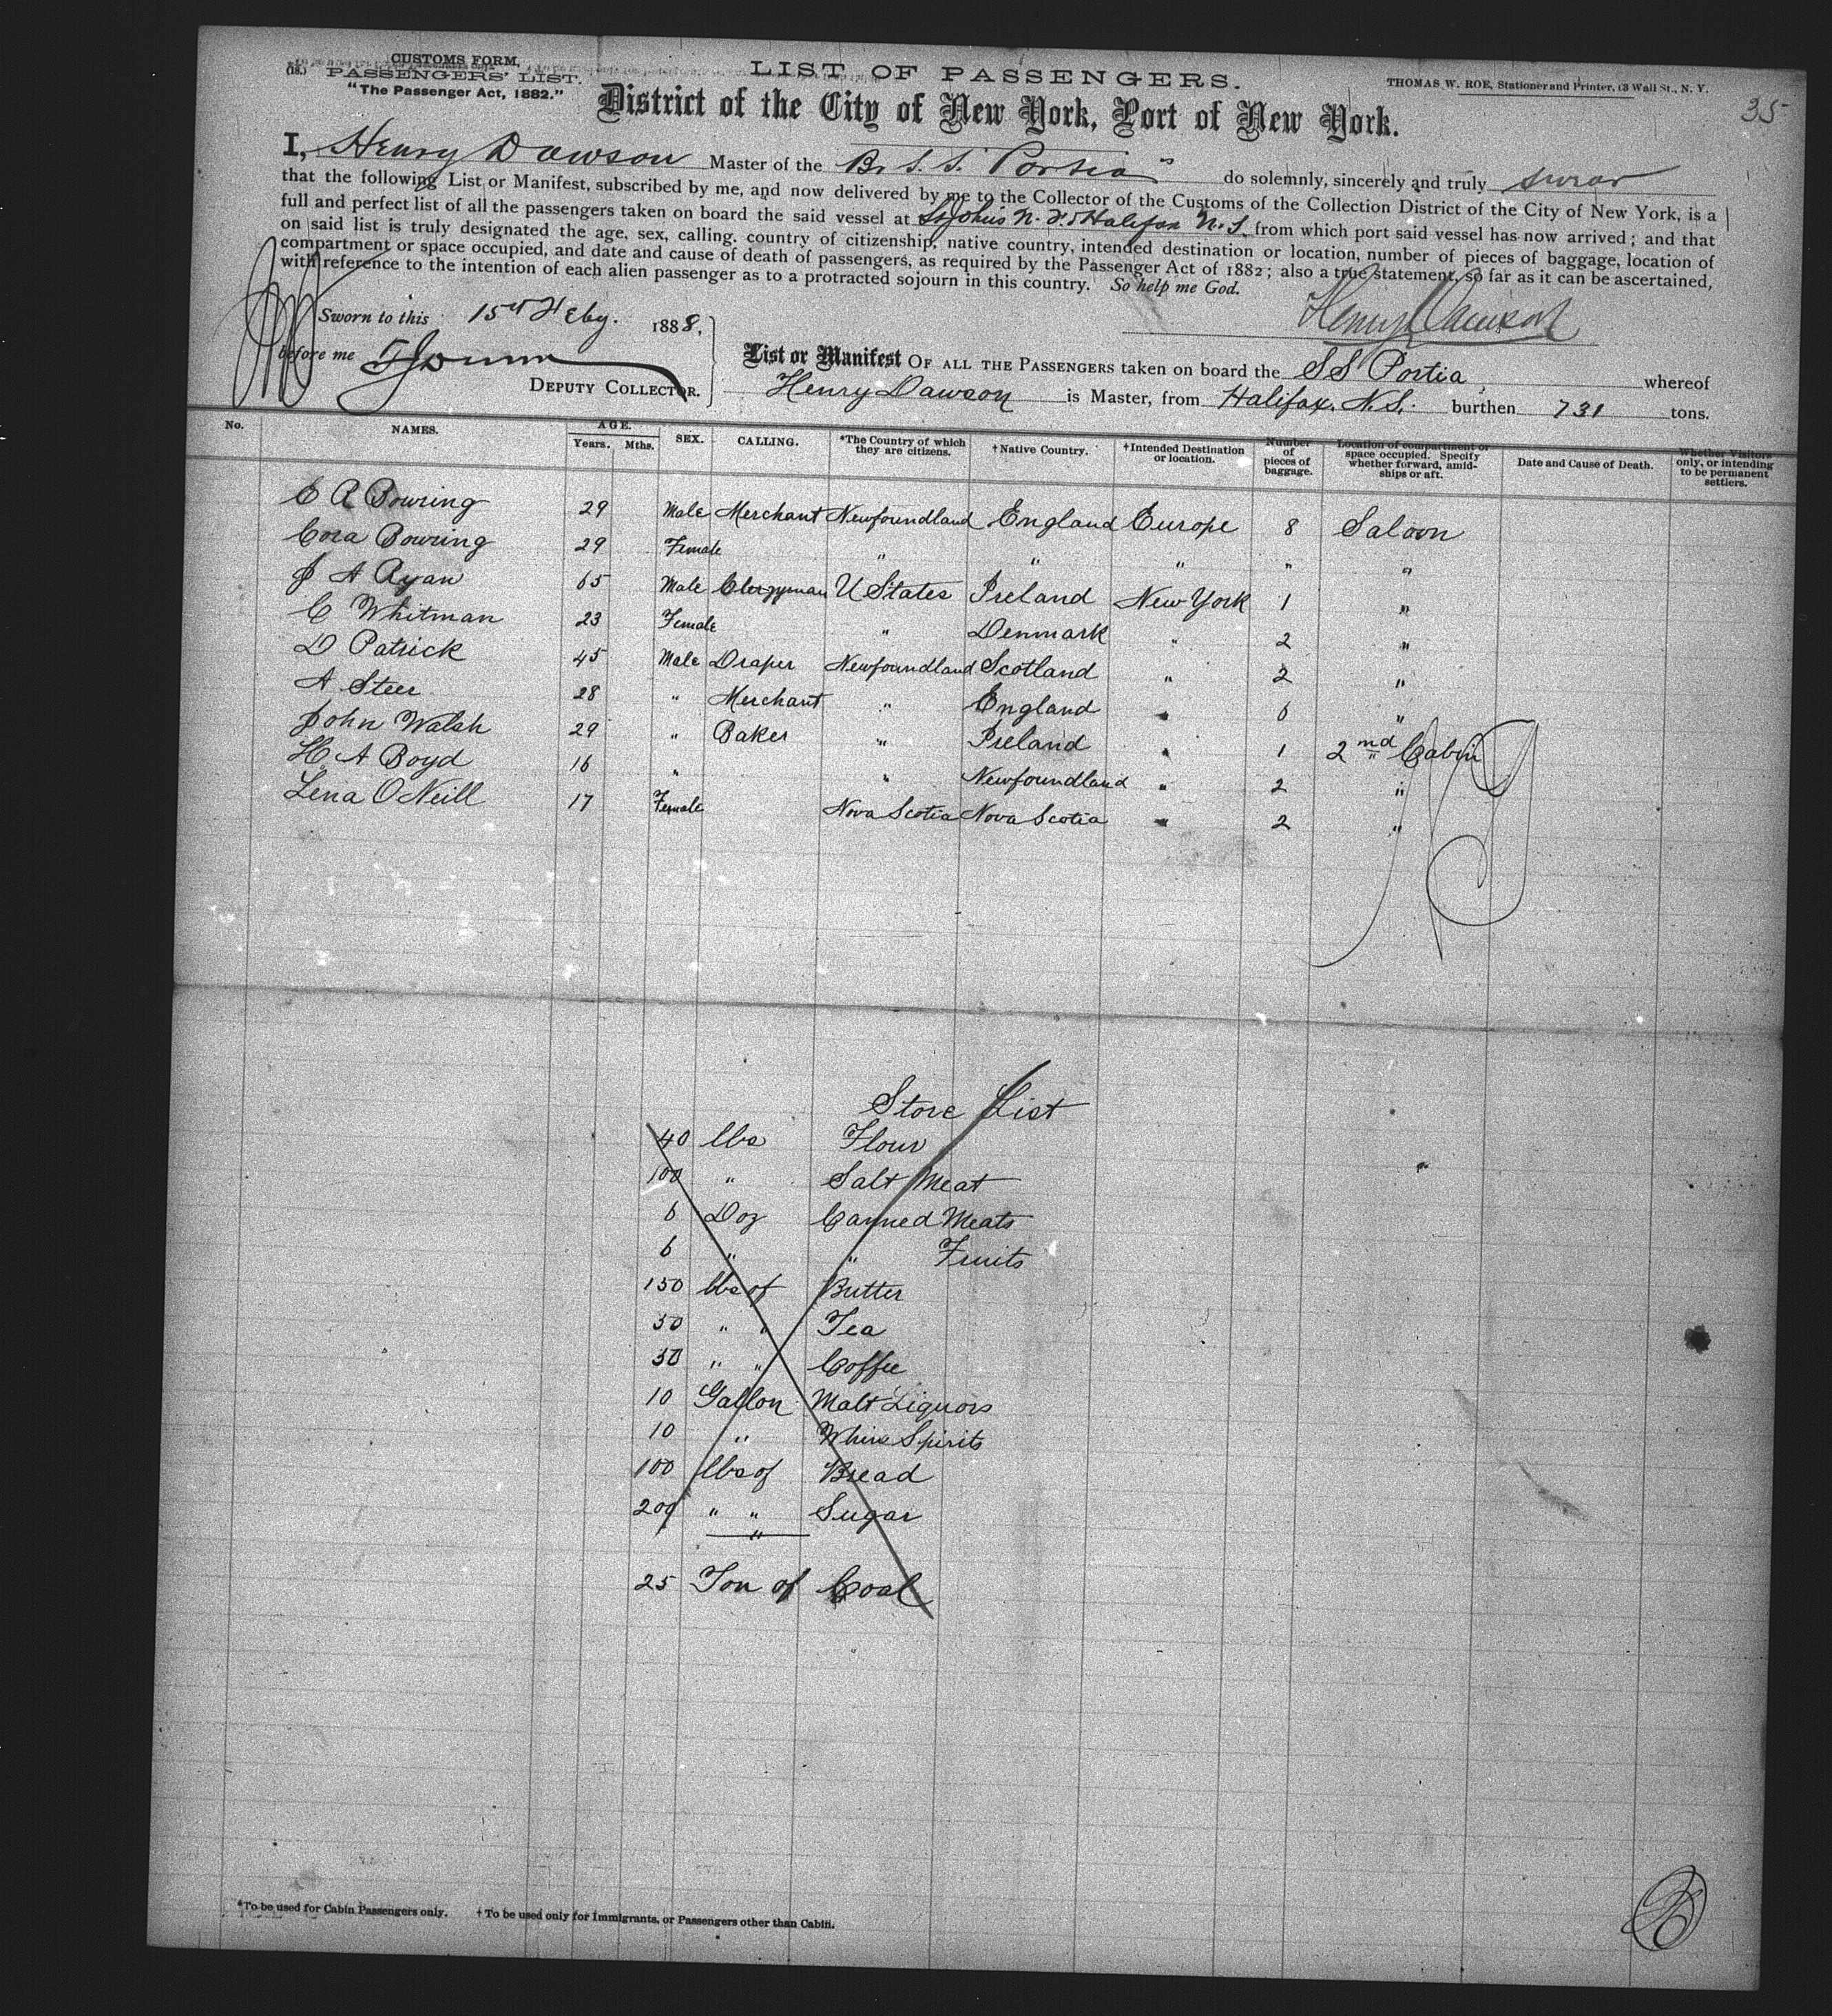 CUSTOMS FORM,
(18.) PASSENGERS' LIST.
"The Passenger Act, 1882."
LIST OF PASSENGERS.
THOMAS W. ROE, Stationer and Printer, 13 Wall St., N. Y.
35
District of the City of New York, Port of New York.
I, Henry Dawson Master of the Br S. S. Portia do solemnly, sincerely and truly swear
that the following List or Manifest, subscribed by me, and now delivered by me to the Collector of the Customs of the Collection District of the City of New York, is a
full and perfect list of all the passengers taken on board the said vessel at St Johns N. F. & Halifax N. S. from which port said vessel has now arrived; and that
on said list is truly designated the age, sex, calling, country of citizenship, native country, intended destination or location, number of pieces of baggage, location of
compartment or space occupied, and date and cause of death of passengers, as required by the Passenger Act of 1882; also a true statement, so far as it can be ascertained,
with reference to the intention of each alien passenger as to a protracted sojourn in this country. So help me God.
Henry Dawson
Sworn to this 15th Feby. 1888,
before me
DEPUTY COLLECTOR.
List or Manifest OF ALL THE PASSENGERS taken on board the SS Portia, whereof
Henry Dawson is Master, from Halifax, N.S. burthen 731 tons.
No. NAMES. AGE. Years. Mths. SEX. CALLING. *The Country of which they are citizens. †Native Country. †Intended Destination or location. Number of pieces of baggage. Location of compartment or space occupied. Specify whether forward, amidships or aft. Date and Cause of Death. Whether Visitors only, or intending to be permanent settlers.
C R Bowring 29 Male Merchant Newfoundland England Europe 8 Saloon
Cora Bowring 29 Female " " " " "
J A Ryan 65 Male Clergyman U States Ireland New York 1 "
C Whitman 23 Female " Denmark " 2 "
D Patrick 45 Male Draper Newfoundland Scotland " 2 "
A Steer 28 " Merchant " England " 6 "
John Walsh 29 " Baker " Ireland " 1 2nd Cabin
H A Boyd 16 " " Newfoundland " 2 "
Lena O Neill 17 Female Nova Scotia Nova Scotia " 2 "
Store List
40 lbs Flour
100 " Salt Meat
6 Doz Canned Meats
6 " " Fruits
150 lbs of Butter
50 " " Tea
50 " " Coffee
10 Gallon Malt Liquors
10 " Spirits
100 lbs of Bread
200 " " Sugar
"
25 Ton of Coal
*To be used for Cabin Passengers only. † To be used only for Immigrants, or Passengers other than Cabin.